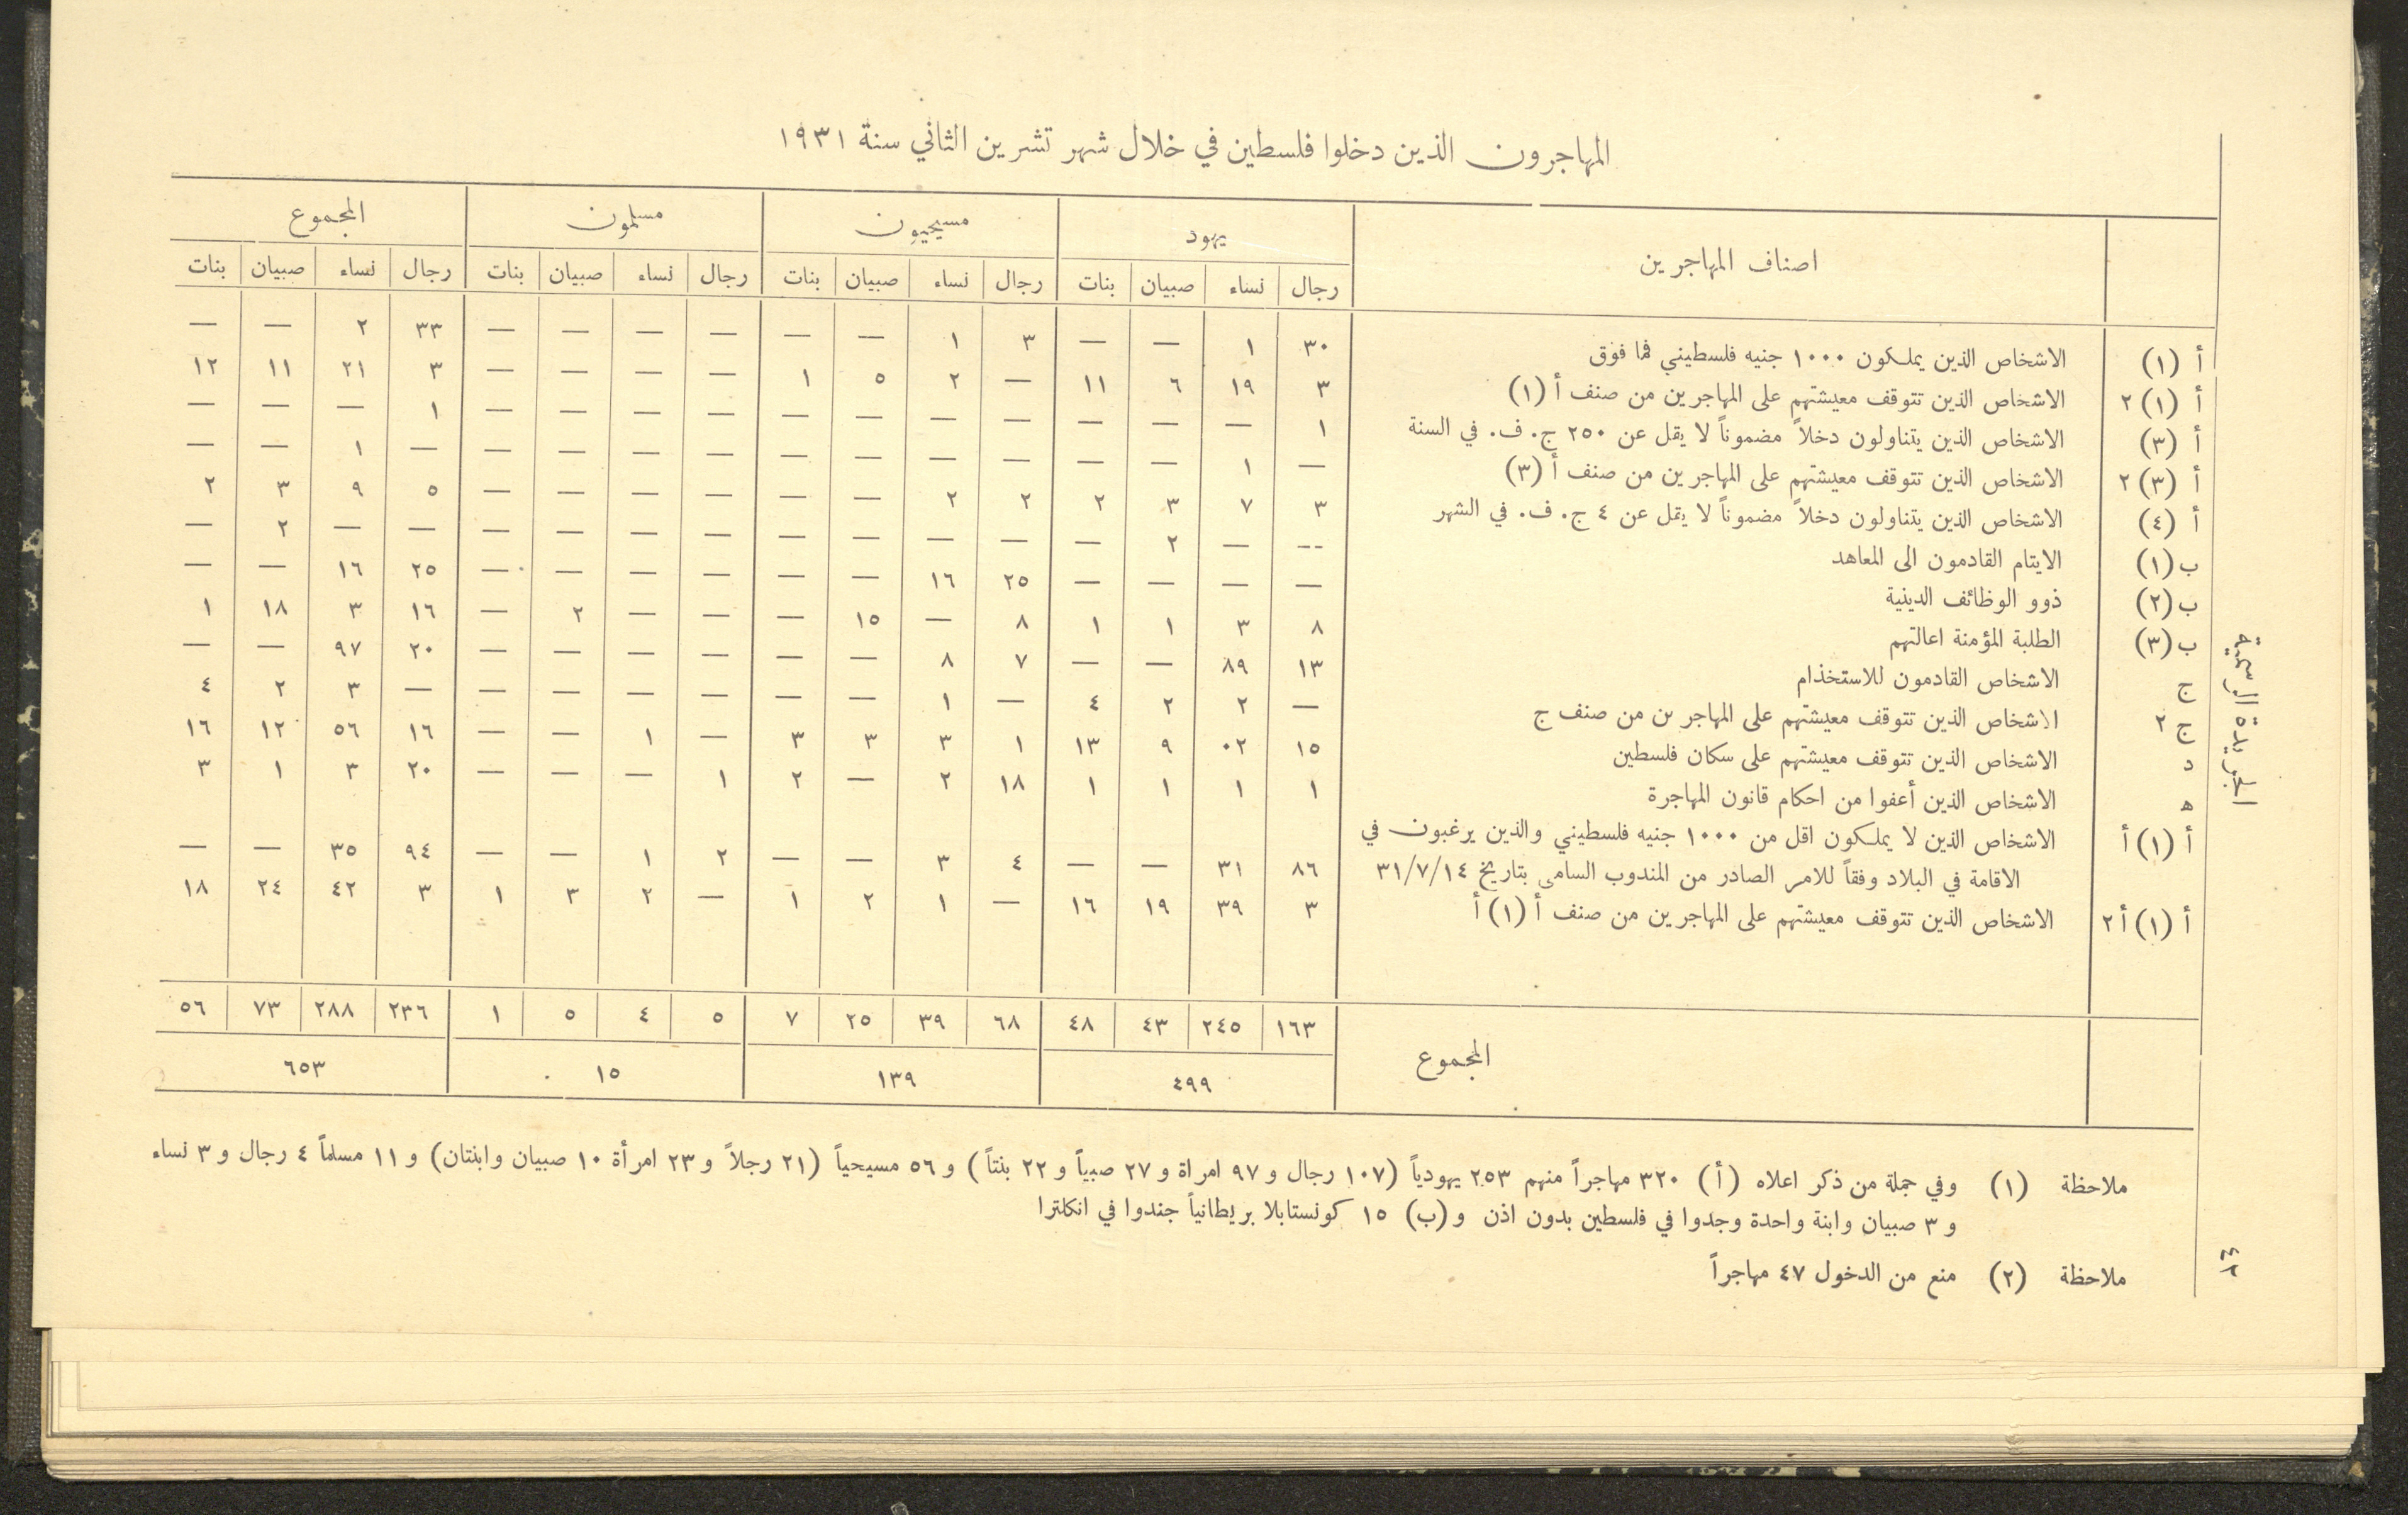 المهاجرون الذين دخلوا فلسطين في خلال شهر تشرين الثاني سنة ١٩٣١
اصناف المهاجرين | يهود | مسيحيون | مسلمون | المجموع
رجال | نساء | صبيان | بنات | رجال | نساء | صبيان | بنات | رجال | نساء | صبيان | بنات | رجال | نساء | صبيان | بنات
أ (١) | الاشخاص الذين يملكون ١٠٠٠ جنيه فلسطيني فما فوق | ٣٠ | ١ | — | — | ٣ | ١ | — | — | — | — | — | — | ٣٣ | ٢ | — | —
أ (١) ٢ | الاشخاص الذين تتوقف معيشتهم على المهاجرين من صنف أ (١) | ٣ | ١٩ | ٦ | ١١ | — | ٢ | ٥ | ١ | — | — | — | — | ٣ | ٢١ | ١١ | ١٢
أ (٣) | الاشخاص الذين يتناولون دخلاً مضموناً لا يقل عن ٢٥٠ ج. ف. في السنة | ١ | — | — | — | — | — | — | — | — | — | — | — | ١ | — | — | —
أ (٣) ٢ | الاشخاص الذين تتوقف معيشتهم على المهاجرين من صنف أ (٣) | — | ١ | — | — | — | — | — | — | — | — | — | — | — | ١ | — | —
أ (٤) | الاشخاص الذين يتناولون دخلاً مضموناً لا يقل عن ٤ ج. ف. في الشهر | ٣ | ٧ | ٣ | ٢ | ٢ | ٢ | — | — | — | — | — | — | ٥ | ٩ | ٣ | ٢
ب (١) | الايتام القادمون الى المعاهد | -- | — | ٢ | — | — | — | — | — | — | — | — | — | — | — | ٢ | —
ب (٢) | ذوو الوظائف الدينية | — | — | — | — | ٢٥ | ١٦ | — | — | — | — | — | — | ٢٥ | ١٦ | — | —
ب (٣) | الطلبة المؤمنة اعالتهم | ٨ | ٣ | ١ | ١ | ٨ | — | ١٥ | — | — | — | ٢ | — | ١٦ | ٣ | ١٨ | ١
ج | الاشخاص القادمون للاستخذام | ١٣ | ٨٩ | — | — | ٧ | ٨ | — | — | — | — | — | — | ٢٠ | ٩٧ | — | —
ج ٢ | الاشخاص الذين تتوقف معيشتهم على المهاجرين من صنف ج | — | ٢ | ٢ | ٤ | — | ١ | — | — | — | — | — | — | — | ٣ | ٢ | ٤
د | الاشخاص الذين تتوقف معيشتهم على سكان فلسطين | ١٥ | ٠٢ | ٩ | ١٣ | ١ | ٣ | ٣ | ٣ | — | ١ | — | — | ١٦ | ٥٦ | ١٢ | ١٦
ه | الاشخاص الذين أعفوا من احكام قانون المهاجرة | ١ | ١ | ١ | ١ | ١٨ | ٢ | — | ٢ | ١ | — | — | — | ٢٠ | ٣ | ١ | ٣
أ (١) أ | الاشخاص الذين لا يملكون اقل من ١٠٠٠ جنيه فلسطيني والذين يرغبون في
الاقامة في البلاد وفقاً للامر الصادر من المندوب السامي بتاريخ ٣١/٧/١٤ | ٨٦ | ٣١ | — | — | ٤ | ٣ | — | — | ٢ | ١ | — | — | ٩٤ | ٣٥ | — | —
أ (١) أ ٢ | الاشخاص الذين تتوقف معيشتهم على المهاجرين من صنف أ (١) أ | ٣ | ٣٩ | ١٩ | ١٦ | — | ١ | ٢ | ١ | — | ٢ | ٣ | ١ | ٣ | ٤٢ | ٢٤ | ١٨
المجموع | ١٦٣ | ٢٤٥ | ٤٣ | ٤٨ | ٦٨ | ٣٩ | ٢٥ | ٧ | ٥ | ٤ | ٥ | ١ | ٢٣٦ | ٢٨٨ | ٧٣ | ٥٦
٤٩٩ | ١٣٩ | ١٥ | ٦٥٣
ملاحظة (١) وفي جملة من ذكر اعلاه (أ) ٣٢٠ مهاجراً منهم ٢٥٣ يهودياً (١٠٧ رجال و ٩٧ امراة و ٢٧ صبياً و ٢٢ بنتاً) و ٥٦ مسيحياً (٢١ رجلاً و ٢٣ امرأة ١٠ صبيان وابنتان) و ١١ مسلماً ٤ رجال و ٣ نساء
و ٣ صبيان وابنة واحدة وجدوا في فلسطين بدون اذن و (ب) ١٥ كونستابلا بريطانياً جندوا في انكلترا
ملاحظة (٢) منع من الدخول ٤٧ مهاجراً
الجريدة الرسمية